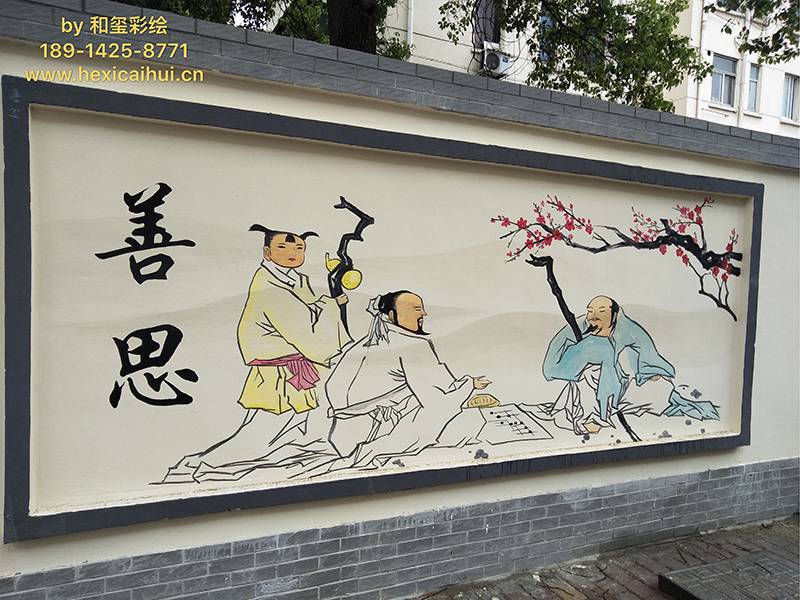 by 和玺彩绘
189-1425-8771
www.hexicaihui.cn
善
思